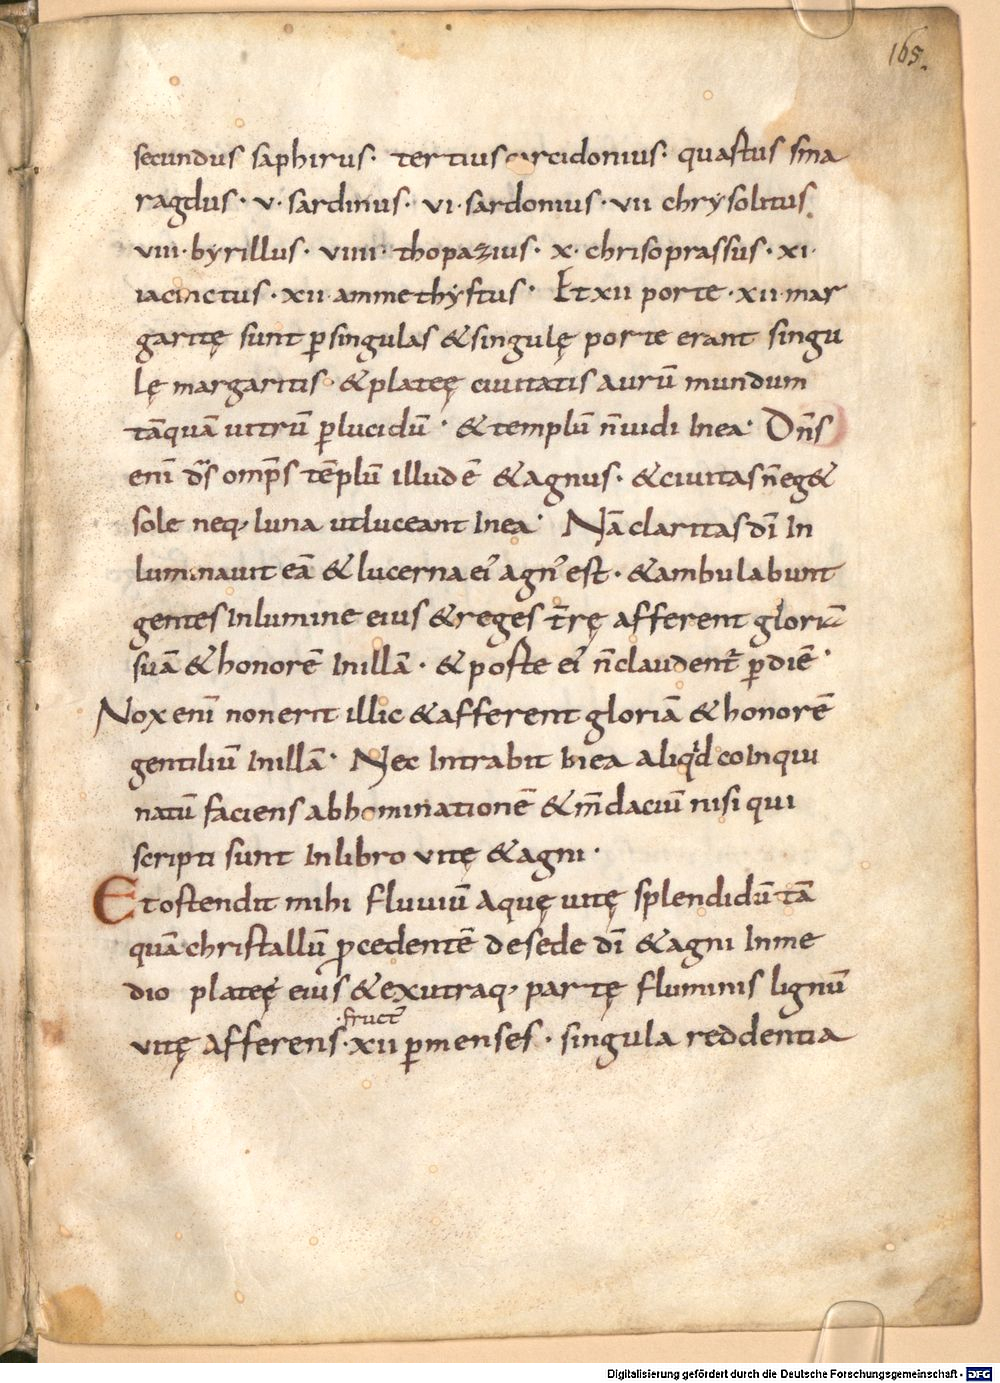 165.
secundus saphirus· tertius carcidonius· quartus sma
ragdus· v· sardinus· vi· sardonius· vii chrysolitus
viii· byrillus· viiii· thopazius· x· chrisoprassus· xi·
iacinctus· xii· ammethystus· Et xii porte· xii· mar
garitę sunt ꝑ singulas & singulę porte erant singu
lę margaritis· & plateę ciuitatis aurū mundum
tāquā uitrū ꝑlucidū· & templū n̄ uidi In ea· Dn̄s
enī d̄s omp̄s tēplū illud ē & agnus· & ciuitas n̄ eg&
sole neq; luna ut luceant In ea· Nā claritas dī In
luminauit eā & lucerna ei᾽ agn᾽ est· & ambulabunt
gentes In lumine eius & reges t̄rę afferent gloriā
suā & honorē In illā· & porte ei᾽ n̄ claudent᷑ ꝑ diē·
Nox enī non erit illic & afferent gloriā & honorē
gentiliū In illā· Nec Intrabit In ea aliqͥd coInqui
natū faciens abhominationē & m̄daciū nisi qui
scripti sunt In libro vitę & agni·
Et ostendit mihi fluuiū Aquę uitę splendidū tā
quā christallū ꝓcedentē de sede dī & agni In me
dio plateę eius & ex utraq; partę fluminis lignū
·fruct᷑
vitę Afferens· xii ꝑ menses· singula reddentia
Digitalisierung gefördert durch die Deutsche Forschungsgemeinschaft - DFG